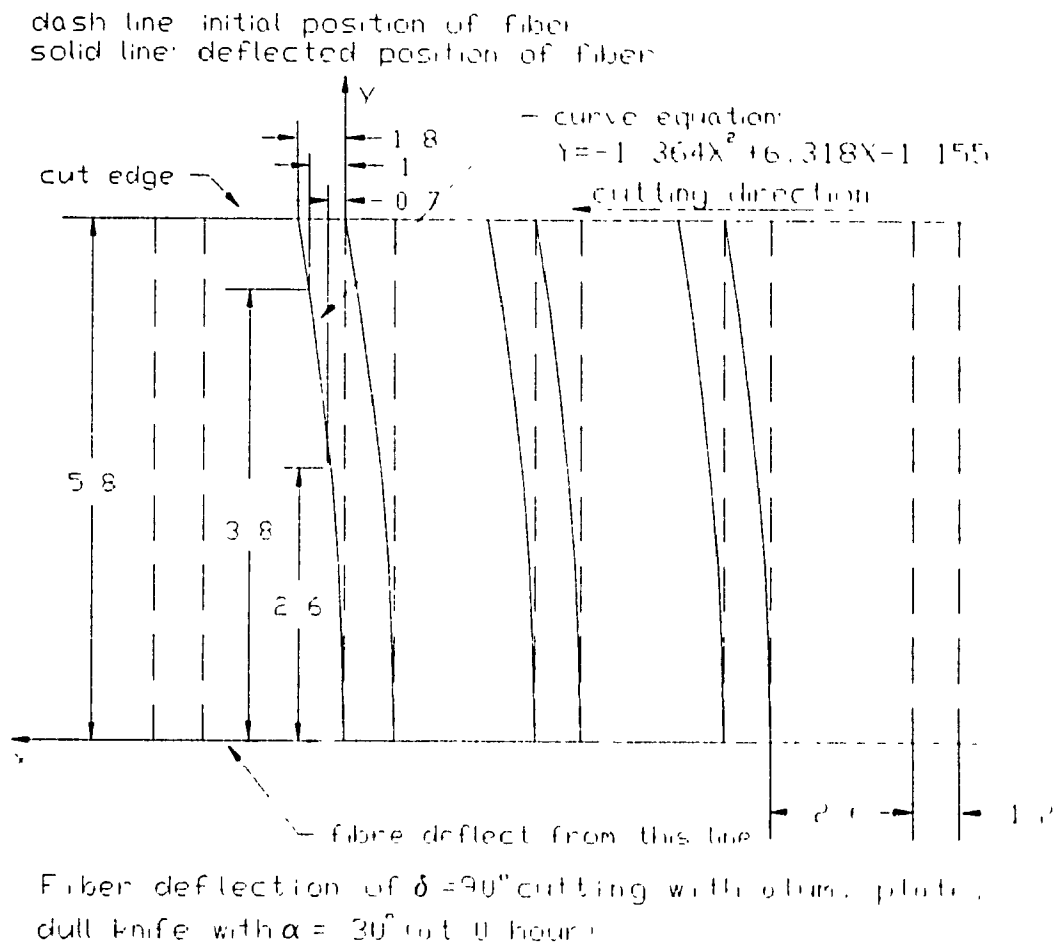 dash line initial position of fiber
solid line deflected position of fiber
Y
1 8
1
0 7
curve equation
Y=-1 364X²+6.318X-1 155
cut edge
cutting direction
5 8
3 8
2 6
X
2
1
fibre deflect from this line
Fiber deflection of δ =90° cutting with alum. plate.
dull knife with α = 30° (at 0 hour)